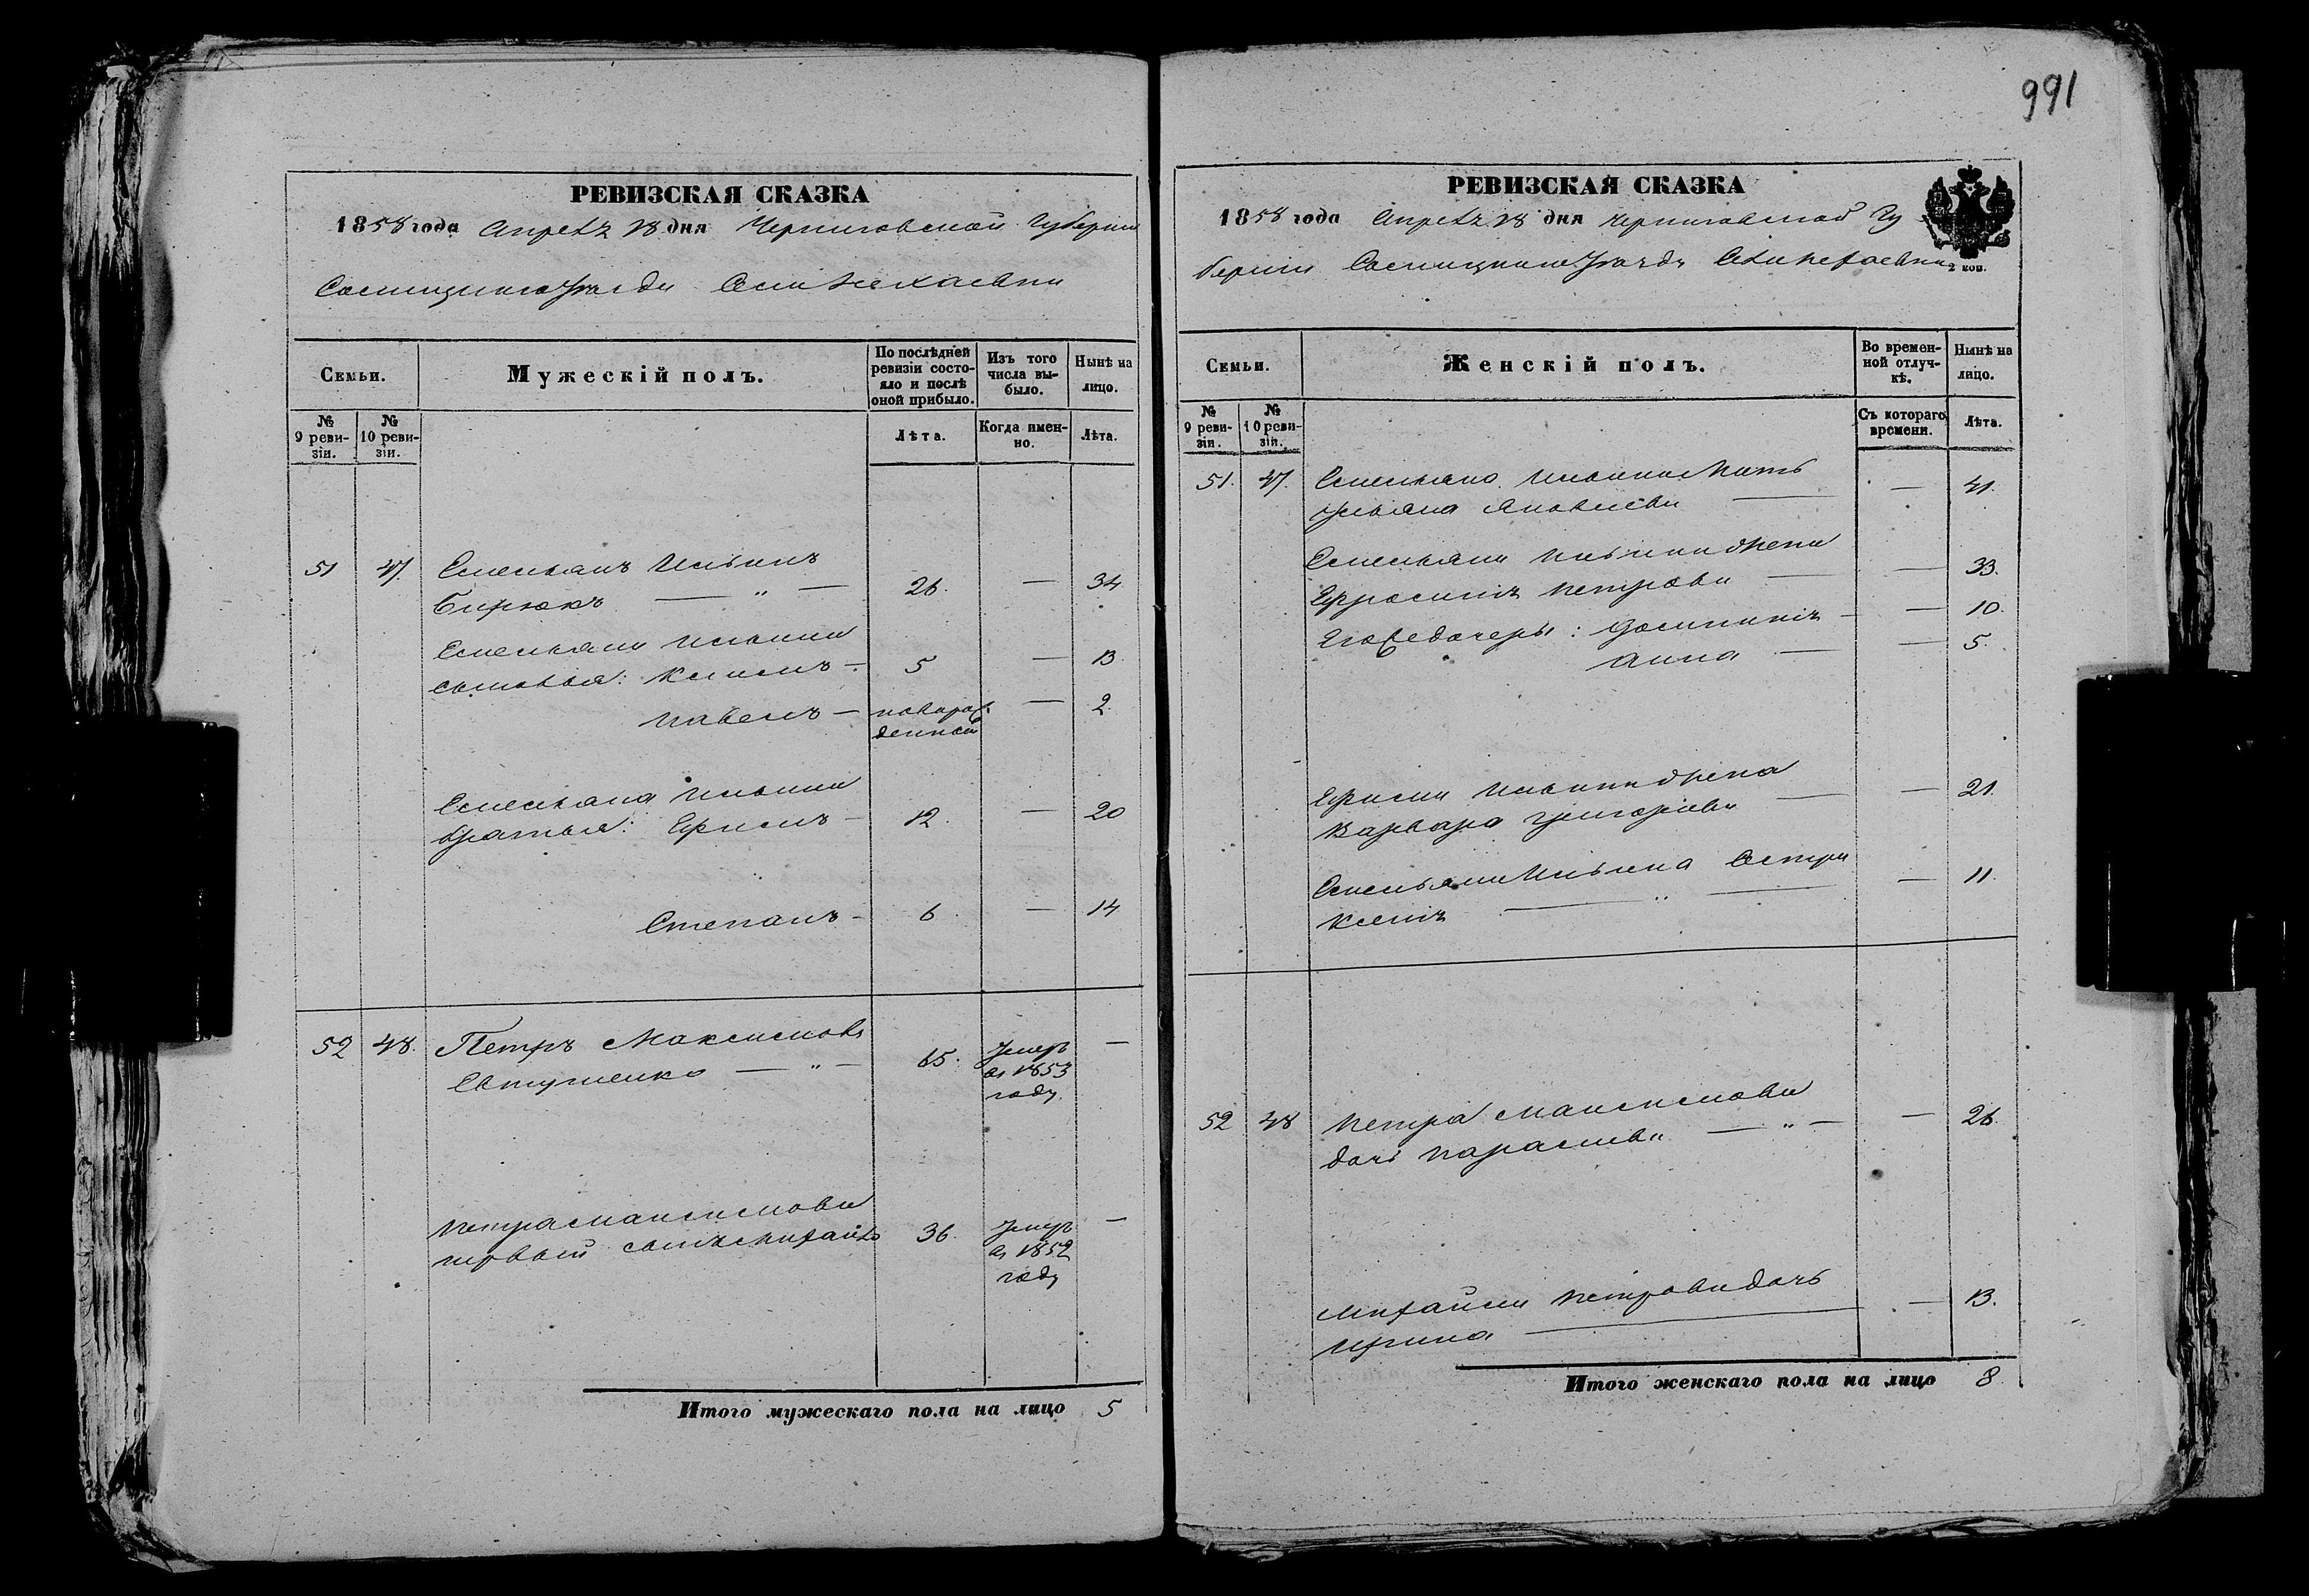 991
РЕВИЗСКАЯ СКАЗКА
1858 года Апреля 18 дня Черниговской Губернии
Сосницкого Уезда
Семьи.
Мужескій полъ.
По послѣдней ревизіи состояло и послѣ оной прибыло.
Изъ того числа выбыло.
Нынѣ на лицо.
№ 9 ревизіи.
№ 10 ревизіи.
Лѣта.
Когда именно.
Лѣта.
51 47 Емельянъ Ильинъ
Бирюкъ — „ — 26. — 34
Емельяна Ильина
сыновья: Климъ — 5 — 13
Павелъ — новорож
денной — 2
Емельяна Ильина
братья: Ефимъ — 12. — 20
Степанъ — 6 — 14
52 48. Петръ Максимовъ
Евтушенко — „ — 65. Умеръ —
въ 1853
году
Петра Максимова
первый сынъ Михайло 36. Умеръ —
въ 1852
году
Итого мужескаго пола на лицо 5
РЕВИЗСКАЯ СКАЗКА
1858 года Апреля 18 дня Черниговской Гу
берніи Сосницкого Уезда
2 коп.
Семьи.
Женскій полъ.
Во временной отлучкѣ.
Нынѣ на лицо.
№ 9 ревизіи.
№ 10 ревизіи.
Съ котораго времени.
Лѣта.
51. 47. Емельяна Ильина Мать
Ульяна Яковлева — — 41.
Емельяна Ильина жена
Ефросинія Петрова — — 33.
Его дочери: Домникія — — 10.
Анна — — 5.
Ефима Ильина жена
Варвара Григорьева — — 21.
Емельяна Ильина Сестра
Ксенія — „ — — 11.
52 48 Петра Максимова
дочь Параскева — „ — — 26.
Михайла Петрова дочь
Ирина — — 13.
Итого женскаго пола на лицо 8